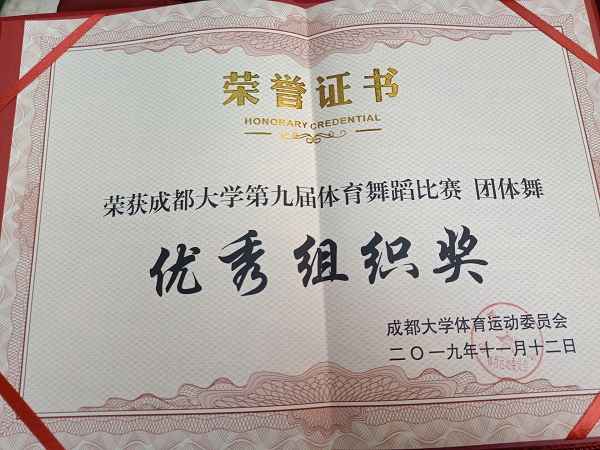 荣誉证书
HONORARY CREDENTIAL
荣获成都大学第九届体育舞蹈比赛 团体舞
优秀组织奖
成都大学体育运动委员会
二〇一九年十一月十二日
体育运动委员会